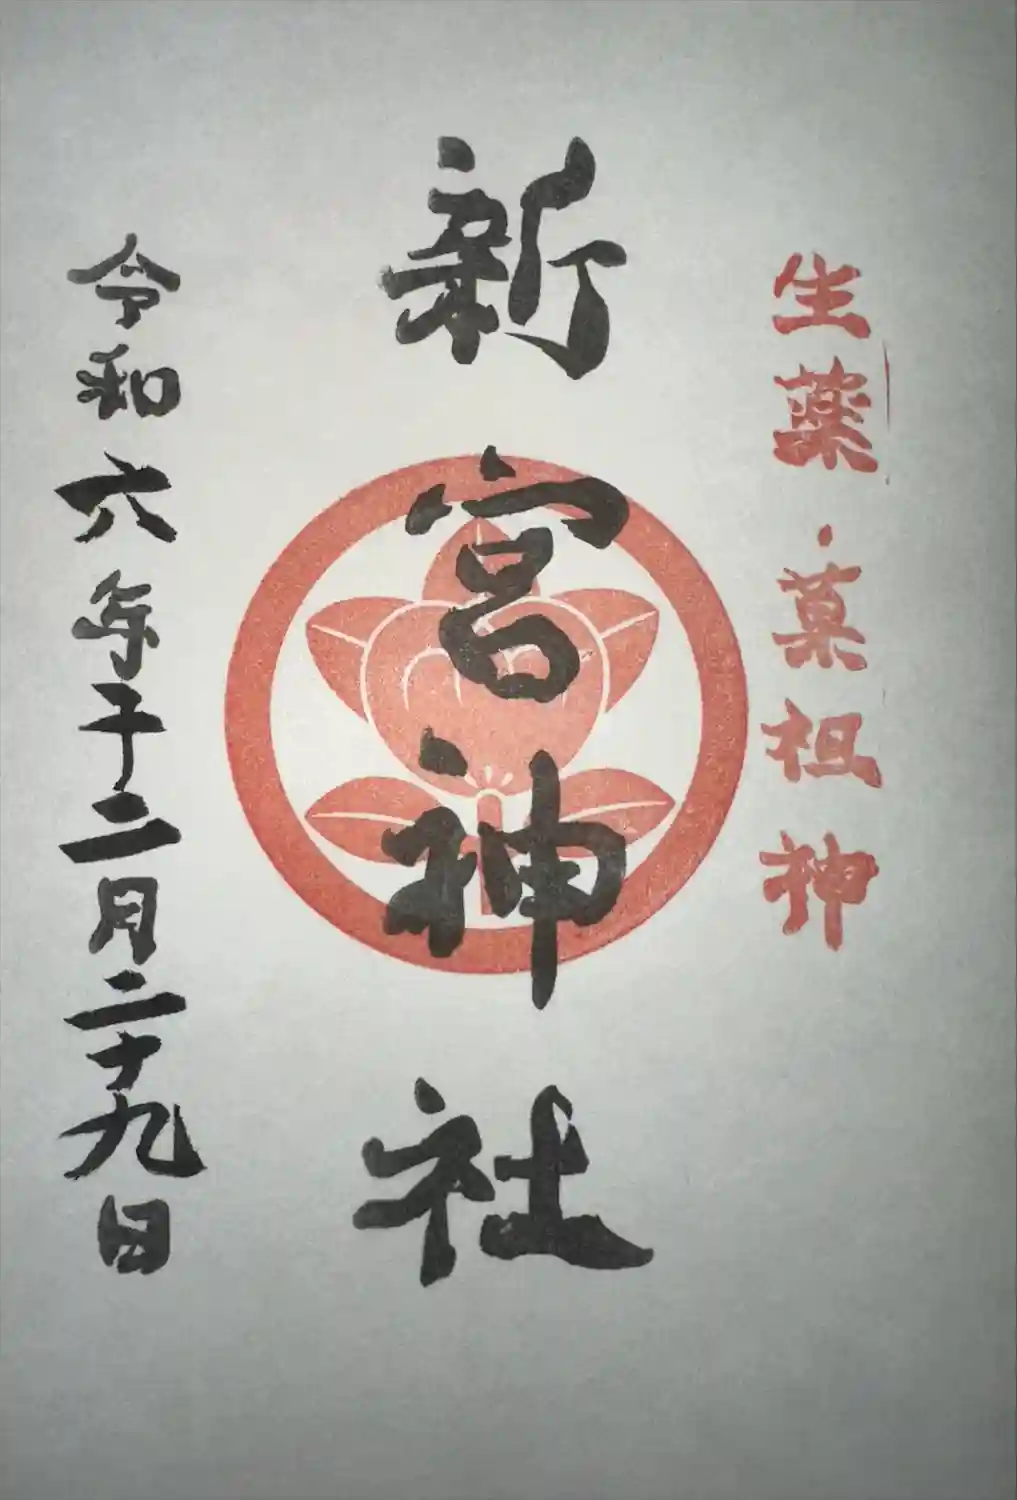 生薬・菓祖神
新宮神社
令和六年十二月二十九日